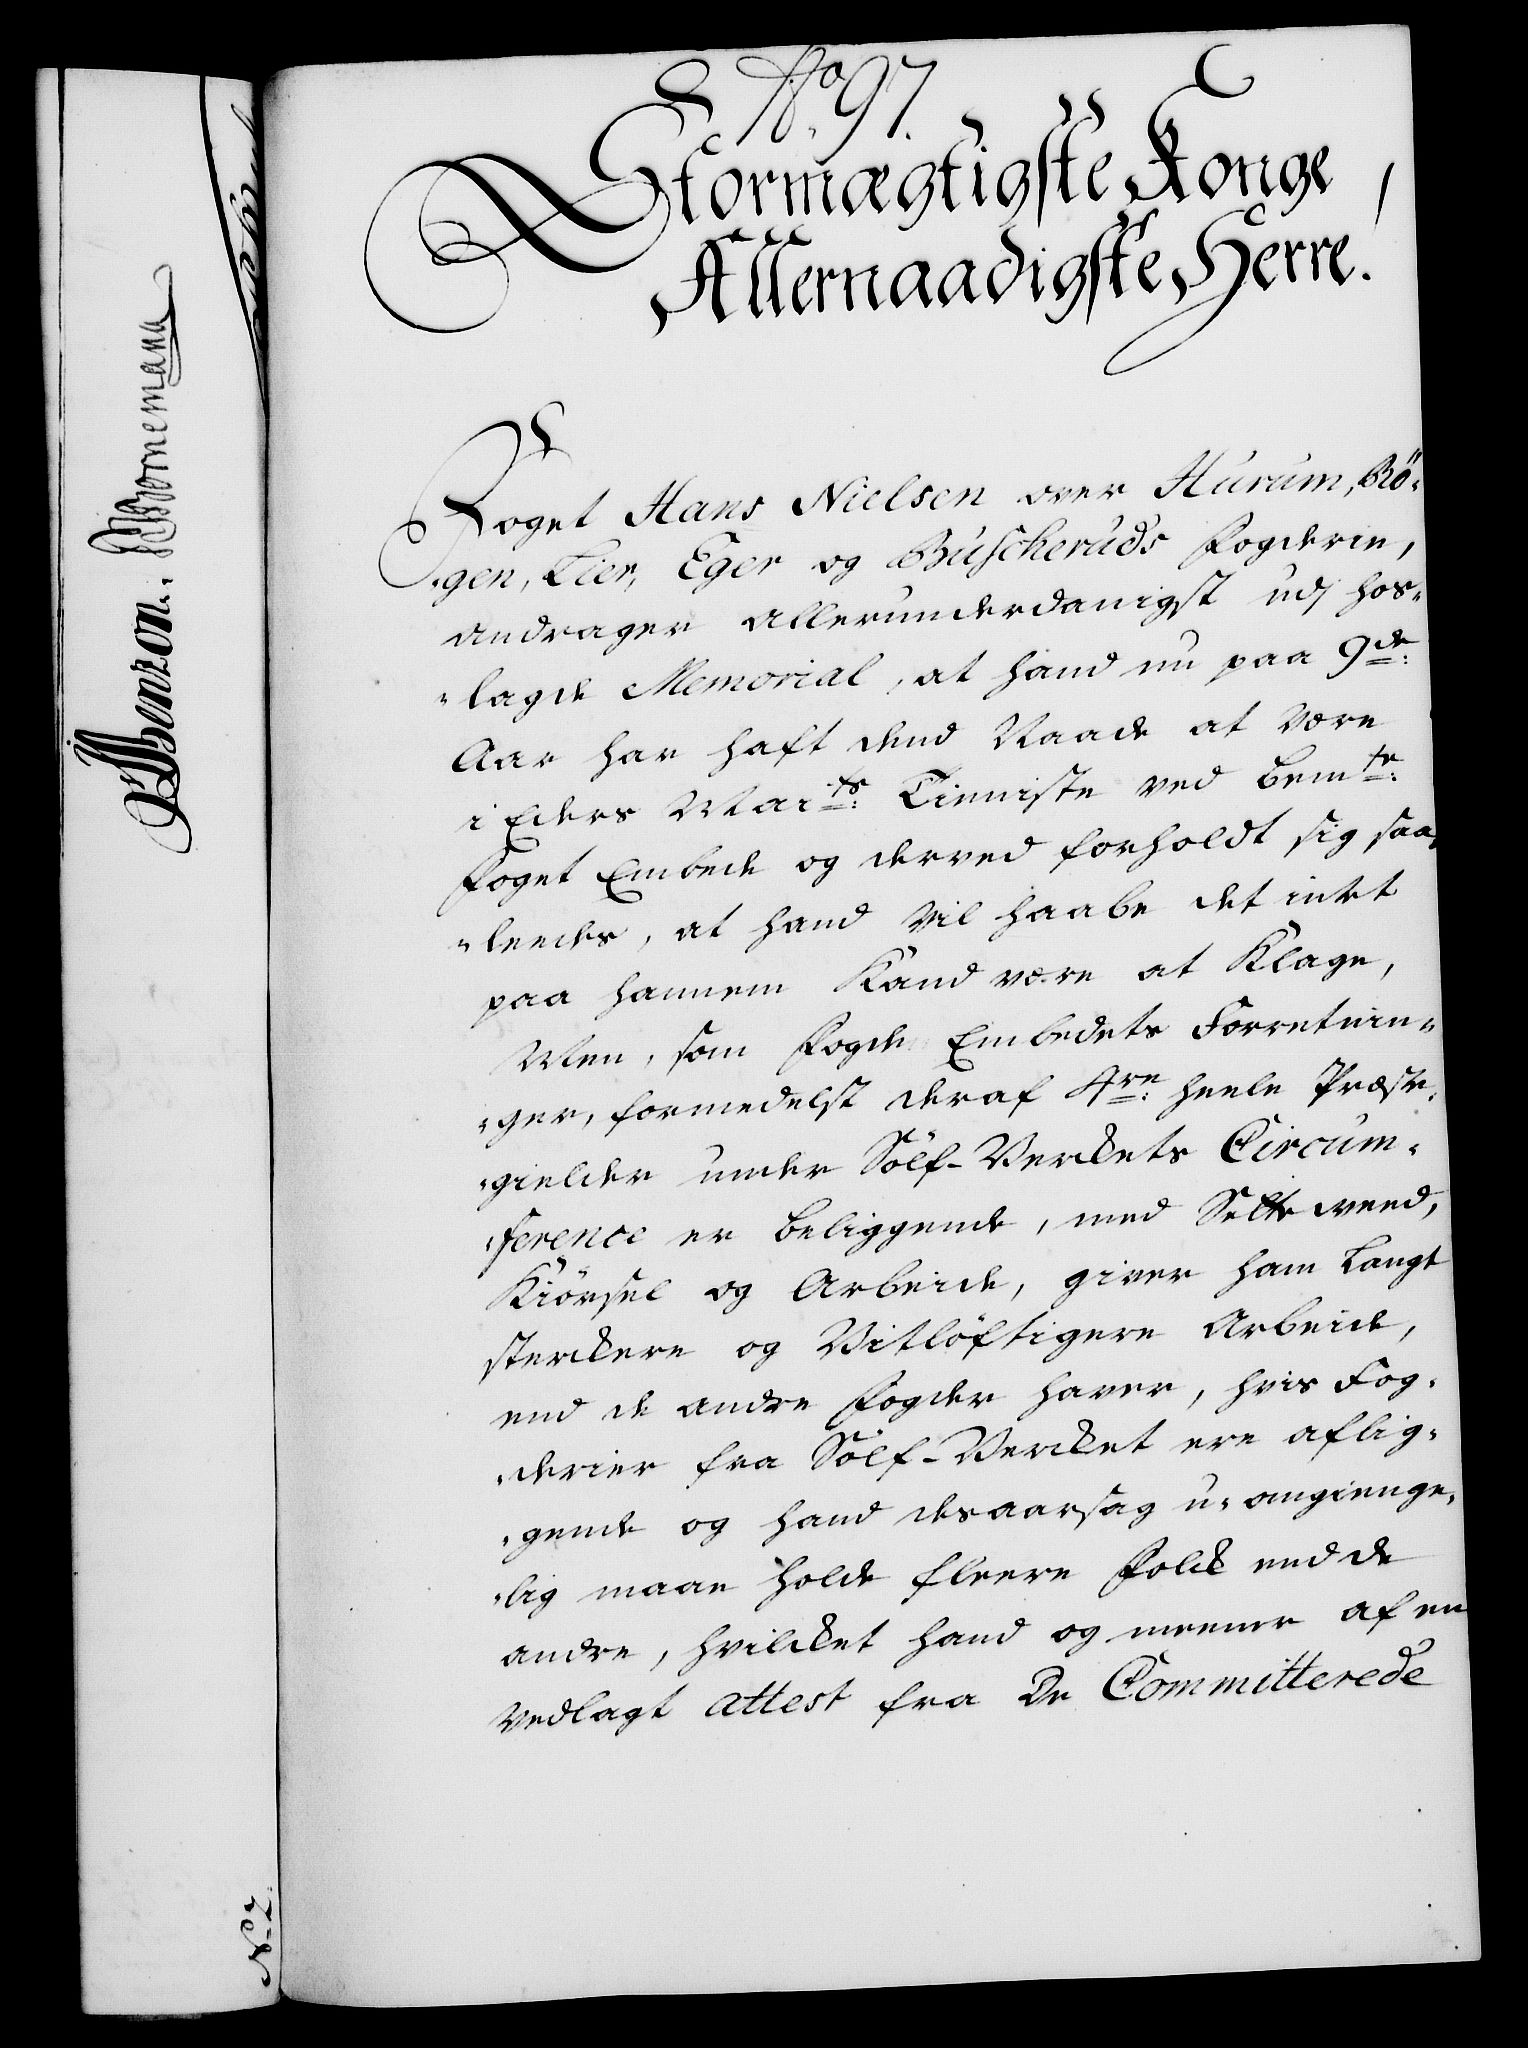 No 97.
Stormægtigste Konge,
Allernaadigste Herre!
Foget Hans Nielsen over Hurum, Rö-
-gen, Lier, Eger og Buscheruds Fogderie,
andrager allerunderdanigst udj hos-
-lagde Memorial, at hand nu paa 9de:
Aar har haft dend Naade at være
i Eders Maits: Tienniste ved bemte:
Foget Embede og derved forholdt sig saa-
-leedes, at hand vil haabe det intet
paa hannem kand være at klage,
Men, som Fogde Embedets Forretnin-
-ger, formedelst deraf 4re: heele Præste-
-gielder under Sölf-Verckets Circum-
-ference er beliggende, med Sette weed,
Kiörsel og Arbeide, giver ham langt
sterckere og Vitlöftigere Arbeide,
end de andre Fogder haver, hvis Fog-
-derier fra Sölf-Vercket ere aflig-
-gende og hand desaarsag u-omgienge-
-lig maae holde fleere Folck end de
andre, hvilcket hand og meener af en
vedlagt attest fra De Committerede
JBenzon. Bornemann
N 2.